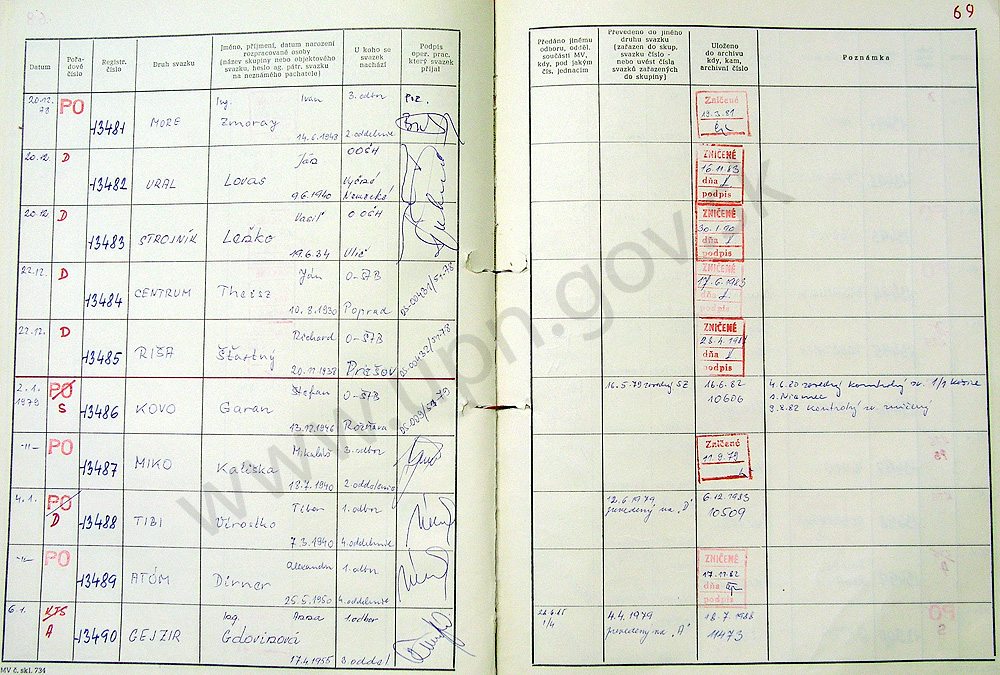 69
Datum
Pořa-
dové
číslo
Registr.
číslo
Druh svazku
Jméno, příjmení, datum narození
rozpracované osoby
(název skupiny nebo objektového
svazku, heslo ag. pátr. svazku
na neznámého pachatele)
U koho se
svazek
nachází
Podpis
oper. prac.
který svazek
přijal
Předáno jinému
odboru, odděl.
součásti MV,
kdy, pod jakým
čís. jednacím
Převedeno do jiného
druhu svazku
(zařazen do skup.
svazku číslo -
nebo uvést čísla
svazků zařazených
do skupiny)
Uloženo
do archivu
kdy, kam,
archivní číslo
Poznámka
20.12.
78
PO
13481
MORE
Ing. Ivan
Zmoray
14.6.1943
3. odbor
2. oddelenie
Zničené
19.3.81
20.12.
D
13482
URAL
Ján
Lovas
9.6.1940
OOČH
Vyšné
Nemecké
ZNIČENÉ
16.11.83
dňa
podpis
20.12.
D
13483
STROJNÍK
Vasiľ
Leško
19.6.34
OOČH
Ulič
ZNIČENÉ
30.1.90
dňa
podpis
22.12.
D
13484
CENTRUM
Ján
10.8.1930
O-ŠTB
Poprad
OS-00431/51-78
ZNIČENÉ
17.6.1983
dňa
podpis
22.12.
D
13485
RIŠA
Richard
Šťastný
20.11.1937
O-ŠTB
Prešov
OS-00432/51-78
ZNIČENÉ
dňa
podpis
2.1.
1979
PO
S
13486
KOVO
Štefan
Garan
13.12.1946
O-ŠTB
Rožňava
16.5.79 zvedený SZ
16.6.82
10606
9.8.82 kontrolný sv. zničený
-11-
PO
13487
MIKO
Mikuláš
Kaliska
18.7.1940
3. odbor
2. oddelenie
Zničené
11.9.79
4.1.
PO
D
13488
TIBI
Tibor
Virostko
7.3.1940
1. odbor
4. oddelenie
12.6.1979
prevedený na "D"
6.12.1983
10509
-11-
PO
13489
ATÓM
Alexander
Dirner
25.5.1950
1. odbor
4. oddelenie
ZNIČENÉ
17.11.82
dňa
podpis
6.1.
KTS
A
13490
GEJZIR
Ing. Anna
Gdovinová
17.4.1955
1. odbor
3. oddel
4.4.1979
prevedený na "A"
18.7.1988
11473
MV č. skl. 734
www.upn.gov.sk